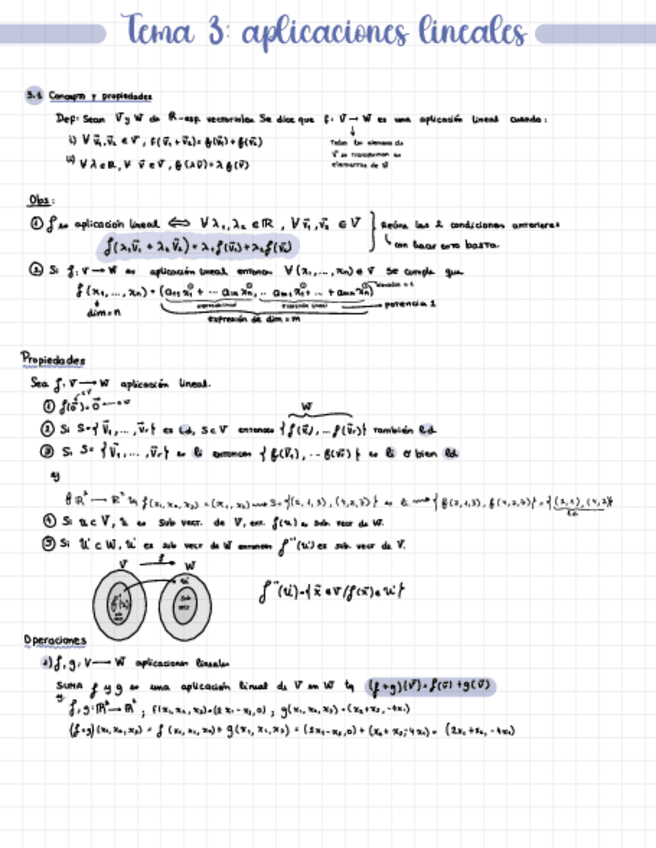 Tema 3: aplicaciones lineales
3.1 Concepto y propiedades
Def: Sean V y W dos R-esp. vectoriales. Se dice que f: V → W es una aplicación lineal cuando:
i) ∀ v⃗₁, v⃗₂ ∈ V, f(v⃗₁ + v⃗₂) = f(v⃗₁) + f(v⃗₂)
ii) ∀ λ ∈ R, ∀ v⃗ ∈ V, f(λv⃗) = λ f(v⃗)
Todos los elementos de
V se transforman en
elementos de W
Obs:
① f es aplicación lineal ⟺ ∀ λ₁, λ₂ ∈ R, ∀ v⃗₁, v⃗₂ ∈ V } Reúne las 2 condiciones anteriores
f(λ₁v⃗₁ + λ₂v⃗₂) = λ₁f(v⃗₁) + λ₂f(v⃗₂) con hacer esto basta.
② Si f: V → W es aplicación lineal entonces ∀ (x₁, ..., xn) ∈ V se cumple que
f(x₁, ..., xn) = (a₁₁x₁ + ... a₁nxn, ... am₁x₁ + ... + amnxn) → potencia 1
dim = n
expresión de dim = m
Propiedades
Sea f: V → W aplicación lineal.
① f(0⃗) = 0⃗
W
② Si S = {v⃗₁, ..., v⃗r} es ld, S ⊂ V entonces {f(v⃗₁), ... f(v⃗r)} también ld.
③ Si S = {v⃗₁, ..., v⃗r} es li entonces {f(v⃗₁), ... f(v⃗r)} es li o bien ld
ej
f: R³ → R² tq f(x₁, x₂, x₃) = (x₁, x₂) → S = {(2,1,3), (4,2,3)} es li → {f(2,1,3), f(4,2,3)} = {(2,1), (4,2)}
ld
④ Si u ⊂ V, u es sub vect. de V, ent. f(u) es sub. vect de W.
⑤ Si u' ⊂ W, u' es sub vect de W entonces f⁻¹(u') es sub. vect de V.
V f W
f⁻¹(u') = {x⃗ ∈ V / f(x⃗) ∈ u'}
Operaciones
1) f, g: V → W aplicaciones lineales
SUMA f y g es una aplicación lineal de V en W tq (f+g)(v⃗) = f(v⃗) + g(v⃗)
ej. f, g: R³ → R²; f(x₁, x₂, x₃) = (2x₁ - x₃, 0); g(x₁, x₂, x₃) = (x₂ + x₃, -4x₁)
(f+g)(x₁, x₂, x₃) = f(x₁, x₂, x₃) + g(x₁, x₂, x₃) = (2x₁ - x₃, 0) + (x₂ + x₃, -4x₁) = (2x₁ + x₂, -4x₁)